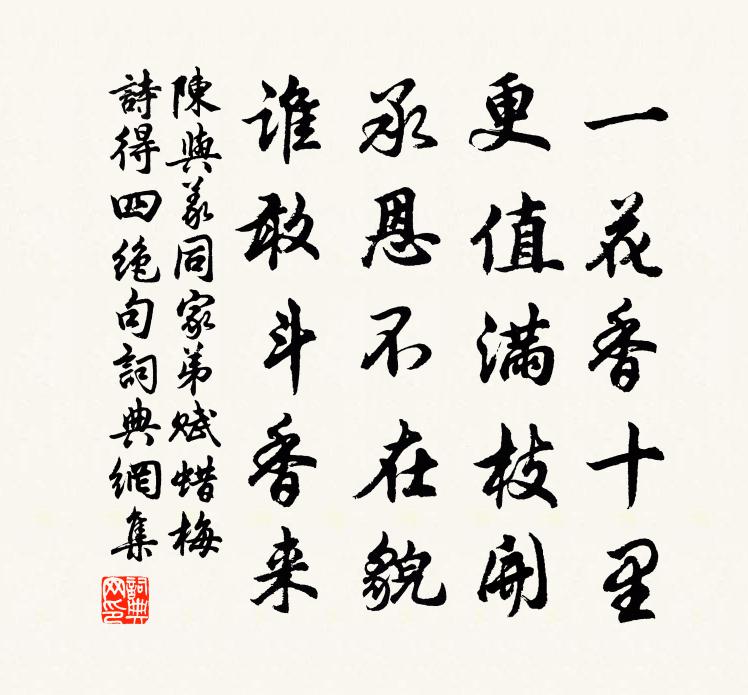 一花香十里
更值滿枝開
承恩不在貌
谁敢斗香来
陳與義同家弟賦蜡梅
詩得四絶句詞典網集
詞典
网印